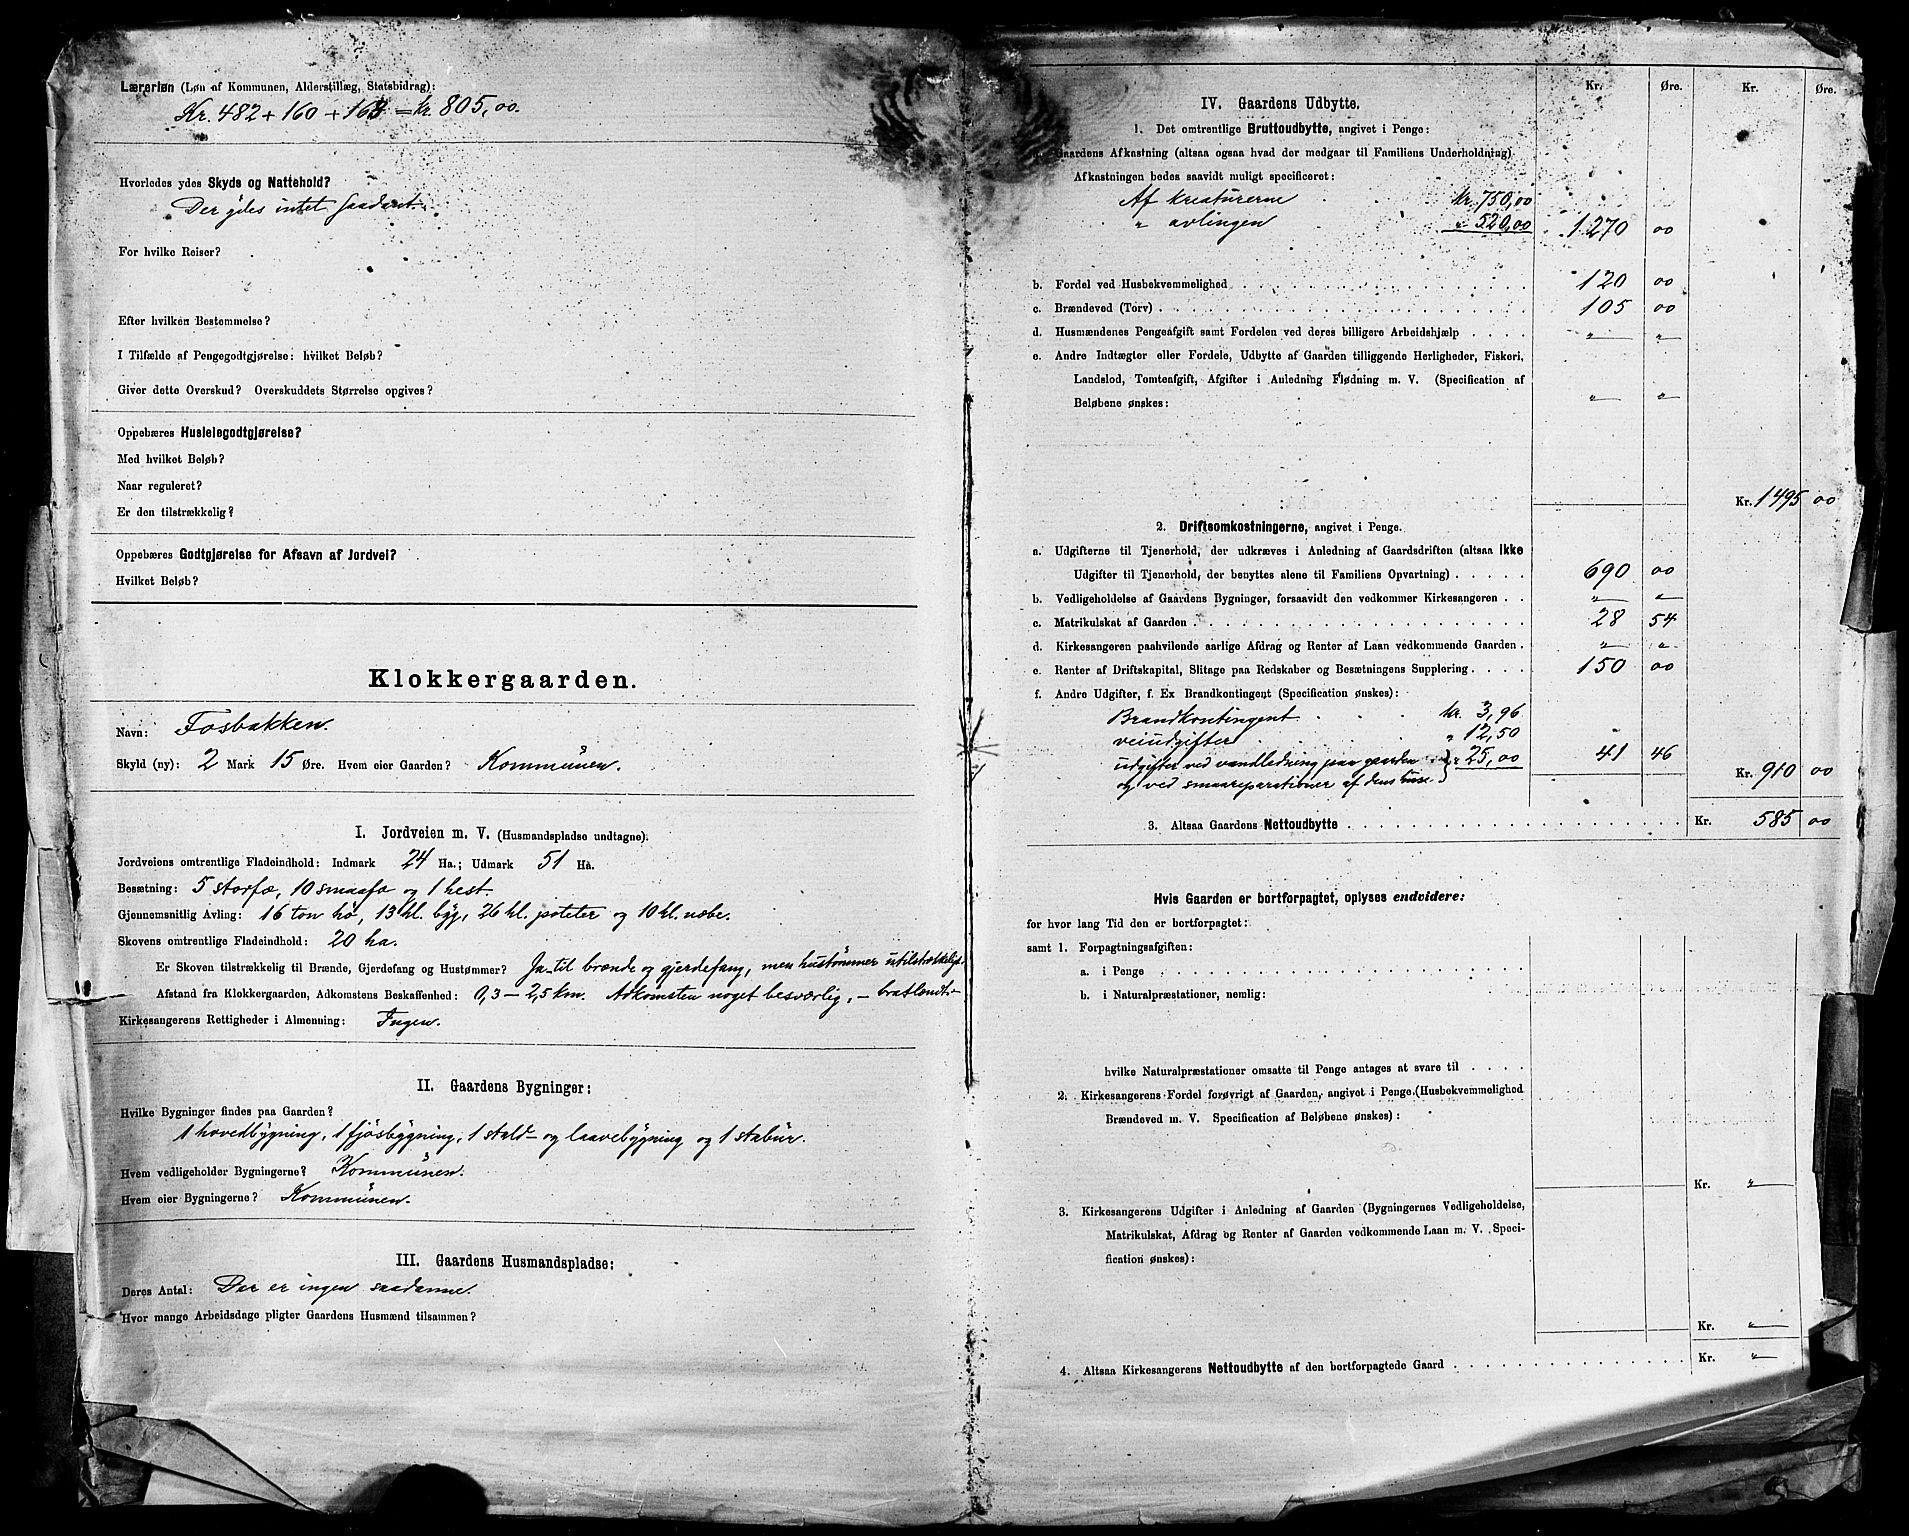 Lærerløn (Løn af Kommunen, Alderstillæg, Statsbidrag):
Kr. 482 + 160 + 163 = kr. 805,00.
Hvorledes ydes Skyds og Nattehold?
Der ydes intet saadant.
For hvilke Reiser?
Efter hvilken Bestemmelse?
I Tilfælde af Pengegodtgjørelse: hvilket Beløb?
Giver dette Overskud? Overskuddets Størrelse opgives?
Oppebæres Husleiegodtgjørelse?
Med hvilket Beløb?
Naar reguleret?
Er den tilstrækkelig?
Oppebæres Godtgjørelse for Afsavn af Jordvei?
Hvilket Beløb?
Klokkergaarden.
Navn: Fosbakken.
Skyld (ny): 2 Mark 15 Øre. Hvem eier Gaarden? Kommunen.
I. Jordveien m. V. (Husmandspladse undtagne).
Jordveiens omtrentlige Fladeindhold: Indmark 24 Ha.; Udmark 51 Ha.
Besætning: 5 storfæ, 10 smaafæ og 1 hest.
Gjennemsnitlig Avling: 16 ton hø, 13 hl. byg, 26 hl. poteter og 10 hl. næbe.
Skovens omtrentlige Fladeindhold: 20 ha.
Er Skoven tilstrækkelig til Brænde, Gjerdefang og Hustømmer? Ja til brænde og gjerdefang, men hustømmer utilstrækkelig.
Afstand fra Klokkergaarden, Adkomstens Beskaffenhed: 0,3 – 2,5 km. Adkomsten noget besværlig, – bratlendt. –
Kirkesangerens Rettigheder i Almenning: Ingen.
II. Gaardens Bygninger:
Hvilke Bygninger findes paa Gaarden?
1 hovedbygning, 1 fjøsbygning, 1 stald- og laavebygning og 1 stabur.
Hvem vedligeholder Bygningerne? Kommunen.
Hvem eier Bygningerne? Kommunen.
III. Gaardens Husmandspladse:
Deres Antal: Der er ingen saadanne.
Hvor mange Arbeidsdage pligter Gaardens Husmænd tilsammen?
Kr. Øre. Kr. Øre.
IV. Gaardens Udbytte.
1. Det omtrentlige Bruttoudbytte, angivet i Penge:
Gaardens Afkastning (altsaa ogsaa hvad der medgaar til Familiens Underholdning)
Afkastningen bedes saavidt muligt specificeret:
Af kreaturerne kr. 750,00
" avlingen " 520,00 1270 00
b. Fordel ved Husbekvemmelighed 120 00
c. Brændeved (Torv) 105 00
d. Husmændenes Pengeafgift samt Fordelen ved deres billigere Arbeidshjælp " "
e. Andre Indtægter eller Fordele, Udbytte af Gaarden tilliggende Herligheder, Fiskeri,
Landslod, Tomteafgift, Afgifter i Anledning Flødning m. V. (Specification af
Beløbene ønskes: " "
Kr. 1495 00
2. Driftsomkostningerne, angivet i Penge.
a. Udgifterne til Tjenerhold, der udkræves i Anledning af Gaardsdriften (altsaa ikke
Udgifter til Tjenerhold, der benyttes alene til Familiens Opvartning) 690 00
b. Vedligeholdelse af Gaardens Bygninger, forsaavidt den vedkommer Kirkesangeren " "
c. Matrikulskat af Gaarden 28 54
d. Kirkesangeren paahvilende aarlige Afdrag og Renter af Laan vedkommende Gaarden " "
e. Renter af Driftskapital, Slitage paa Redskaber og Besætningens Supplering 150 00
f. Andre Udgifter, f. Ex Brandkontingent (Specification ønskes):
Brandkontingent kr. 3,96
veiudgifter " 12,50
udgifter ved vandledning paa gaarden } " 25,00 41 46
og ved smaareparationer af dens huse.
Kr. 910 00
3. Altsaa Gaardens Nettoudbytte Kr. 585 00
Hvis Gaarden er bortforpagtet, oplyses endvidere:
for hvor lang Tid den er bortforpagtet:
samt 1. Forpagtningsafgiften:
a. i Penge
b. i Naturalpræstationer, nemlig:
hvilke Naturalpræstationer omsatte til Penge antages at svare til
2. Kirkesangerens Fordel forøvrigt af Gaarden, angivet i Penge (Husbekvemmelighed
Brændeved m. V. Specification af Beløbene ønskes):
Kr. "
3. Kirkesangerens Udgifter i Anledning af Gaarden (Bygningernes Vedligeholdelse,
Matrikulskat, Afdrag og Renter af Gaarden vedkommende Laan m. V. Speci-
fication ønskes):
Kr. "
4. Altsaa Kirkesangerens Nettoudbytte af den bortforpagtede Gaard Kr. "